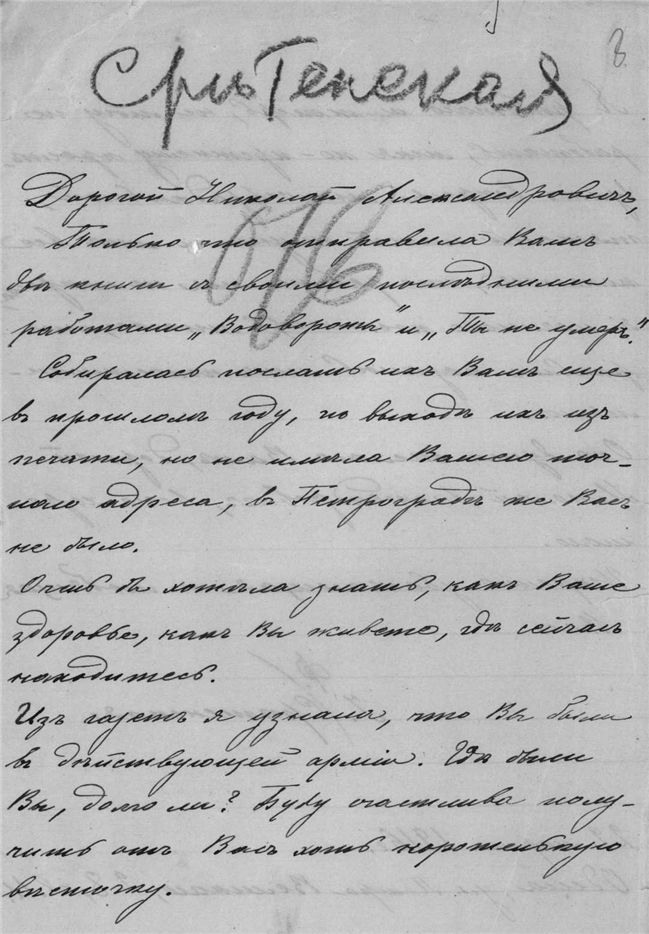 Срѣтенская
Дорогой Николай Александровичъ,
Только что отправила Вамъ
двѣ книги съ своими послѣдними
работами „Водоворотъ" и „Ты не умеръ".
Собиралась послать ихъ Вамъ еще
въ прошломъ году, по выходѣ ихъ изъ
печати, но не имѣла Вашего точ-
наго адреса, въ Петроградѣ же Васъ
не было.
Очень бы хотѣла знать, какъ Ваше
здоровье, какъ Вы живете, гдѣ сейчасъ
находитесь.
Изъ газетъ я узнала, что Вы были
въ дѣйствующей арміи. Гдѣ были
Вы, долго ли? Буду счастлива полу-
чить отъ Васъ хоть коротенькую
вѣсточку.